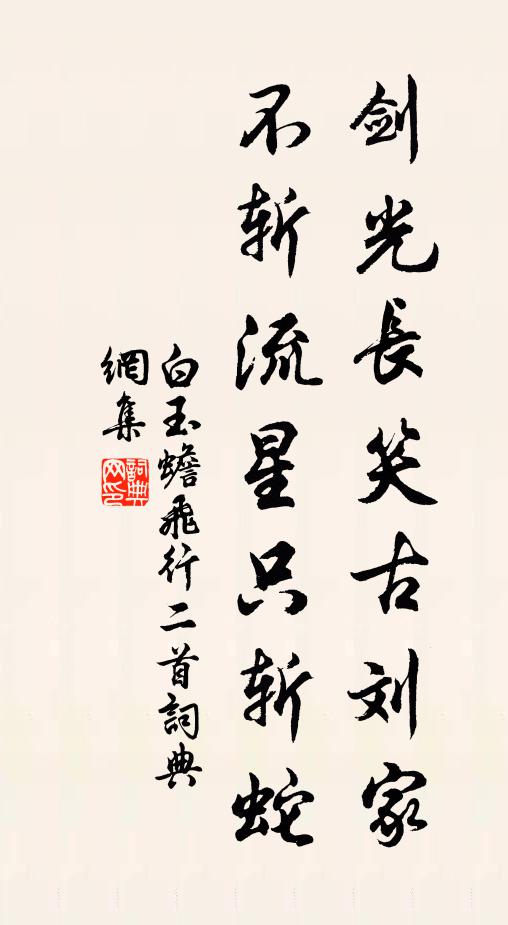 剑光長笑古刘家
不斩流星只斩蛇
白玉蟾飛行二首詞典
網集
詞典
网印